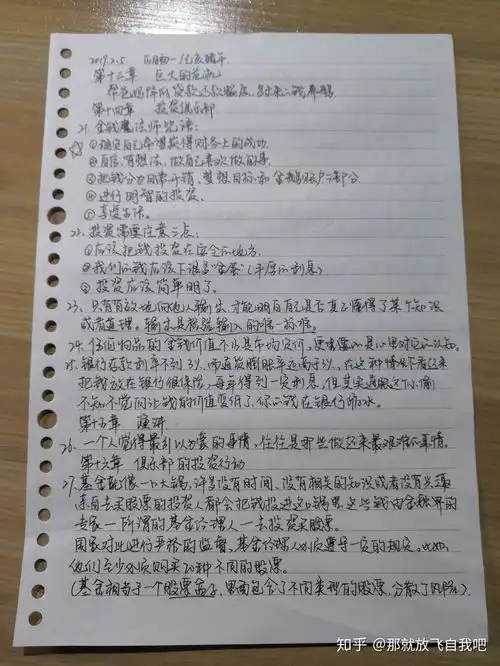 2019.2.5
第十三章 巨大的危机
第十四章 投资俱乐部
21.金钱魔法师咒语:
①确定自己希望获得财务上的成功.
②自信、有想法、做自己喜欢做的事.
③把钱分为日常开销、梦想目标和金鹅账户三部分.
④进行明智的投资.
⑤享受生活.
22.投资需要注意三点:
①应该把钱投资在安全的地方.
②我们的钱应该下很多“金蛋”(丰厚的利息)
③投资应该简单明了.
23.只有有效地向他人输出,才能明白自己是否真正懂得了某个知识
或者道理。输出是检验输入的唯一标准.
24.任何物品的金钱价值不止是市场定价,更重要的是
25.银行存款利率不到3%,而通货膨胀率远高于3%,在这种情况下看起来
把钱放在银行很保险,每年得到一定利息,但其实通胀这个小偷
不知不觉间让钱的价值变低了,你的钱在银行缩水.
第十五章 演讲
26.一个人觉得最引以为豪的事情,往往是那些做起来最艰难的事情.
第十六章 俱乐部的投资行动
27.基金就像一口大锅,许多没有时间、没有相关的知识或者没有兴趣
亲自去买股票的投资人都会把钱投进这口锅里,这些钱由金融界的
专家—所谓的基金经理人—去投资买股票.
国家对此进行严格的监督,基金经理人必须遵守一定的规定,比如,
他们至少必须购买20种不同的股票.
(基金相当于一个股票盒子,里面包含了不同类型的股票,分散了风险).
知乎 @那就放飞自我吧